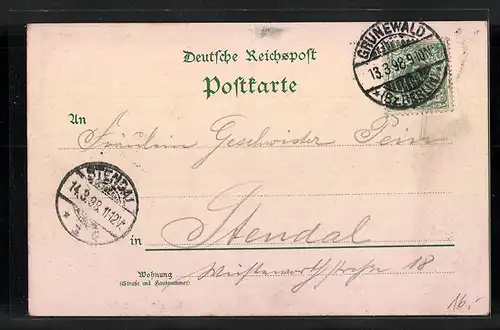 Deutsche Reichspost
Postkarte
GRUNEWALD
13.3.98.9-10N.
* (Bz. BERLIN) *
An
Fräulein Geschwister Pein
STENDAL
14.3.98.11-12V.
in Stendal
Wohnung
(Straße und Hausnummer)
18
16.-